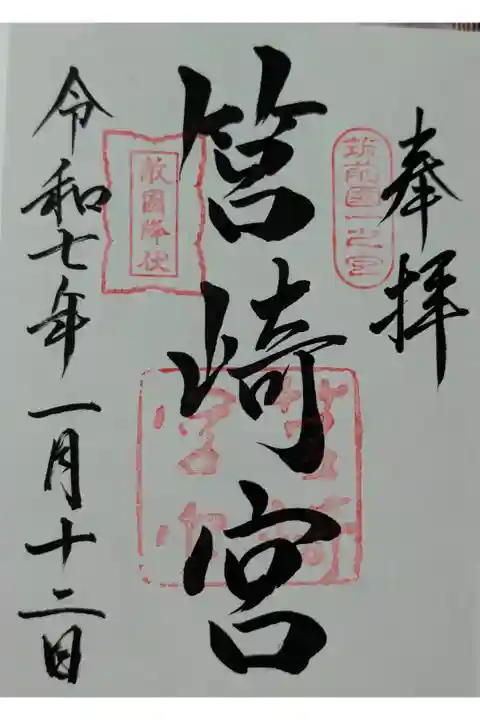 奉拝
筑前国一之宮
筥崎宮
敵國降伏
令和七年一月十二日